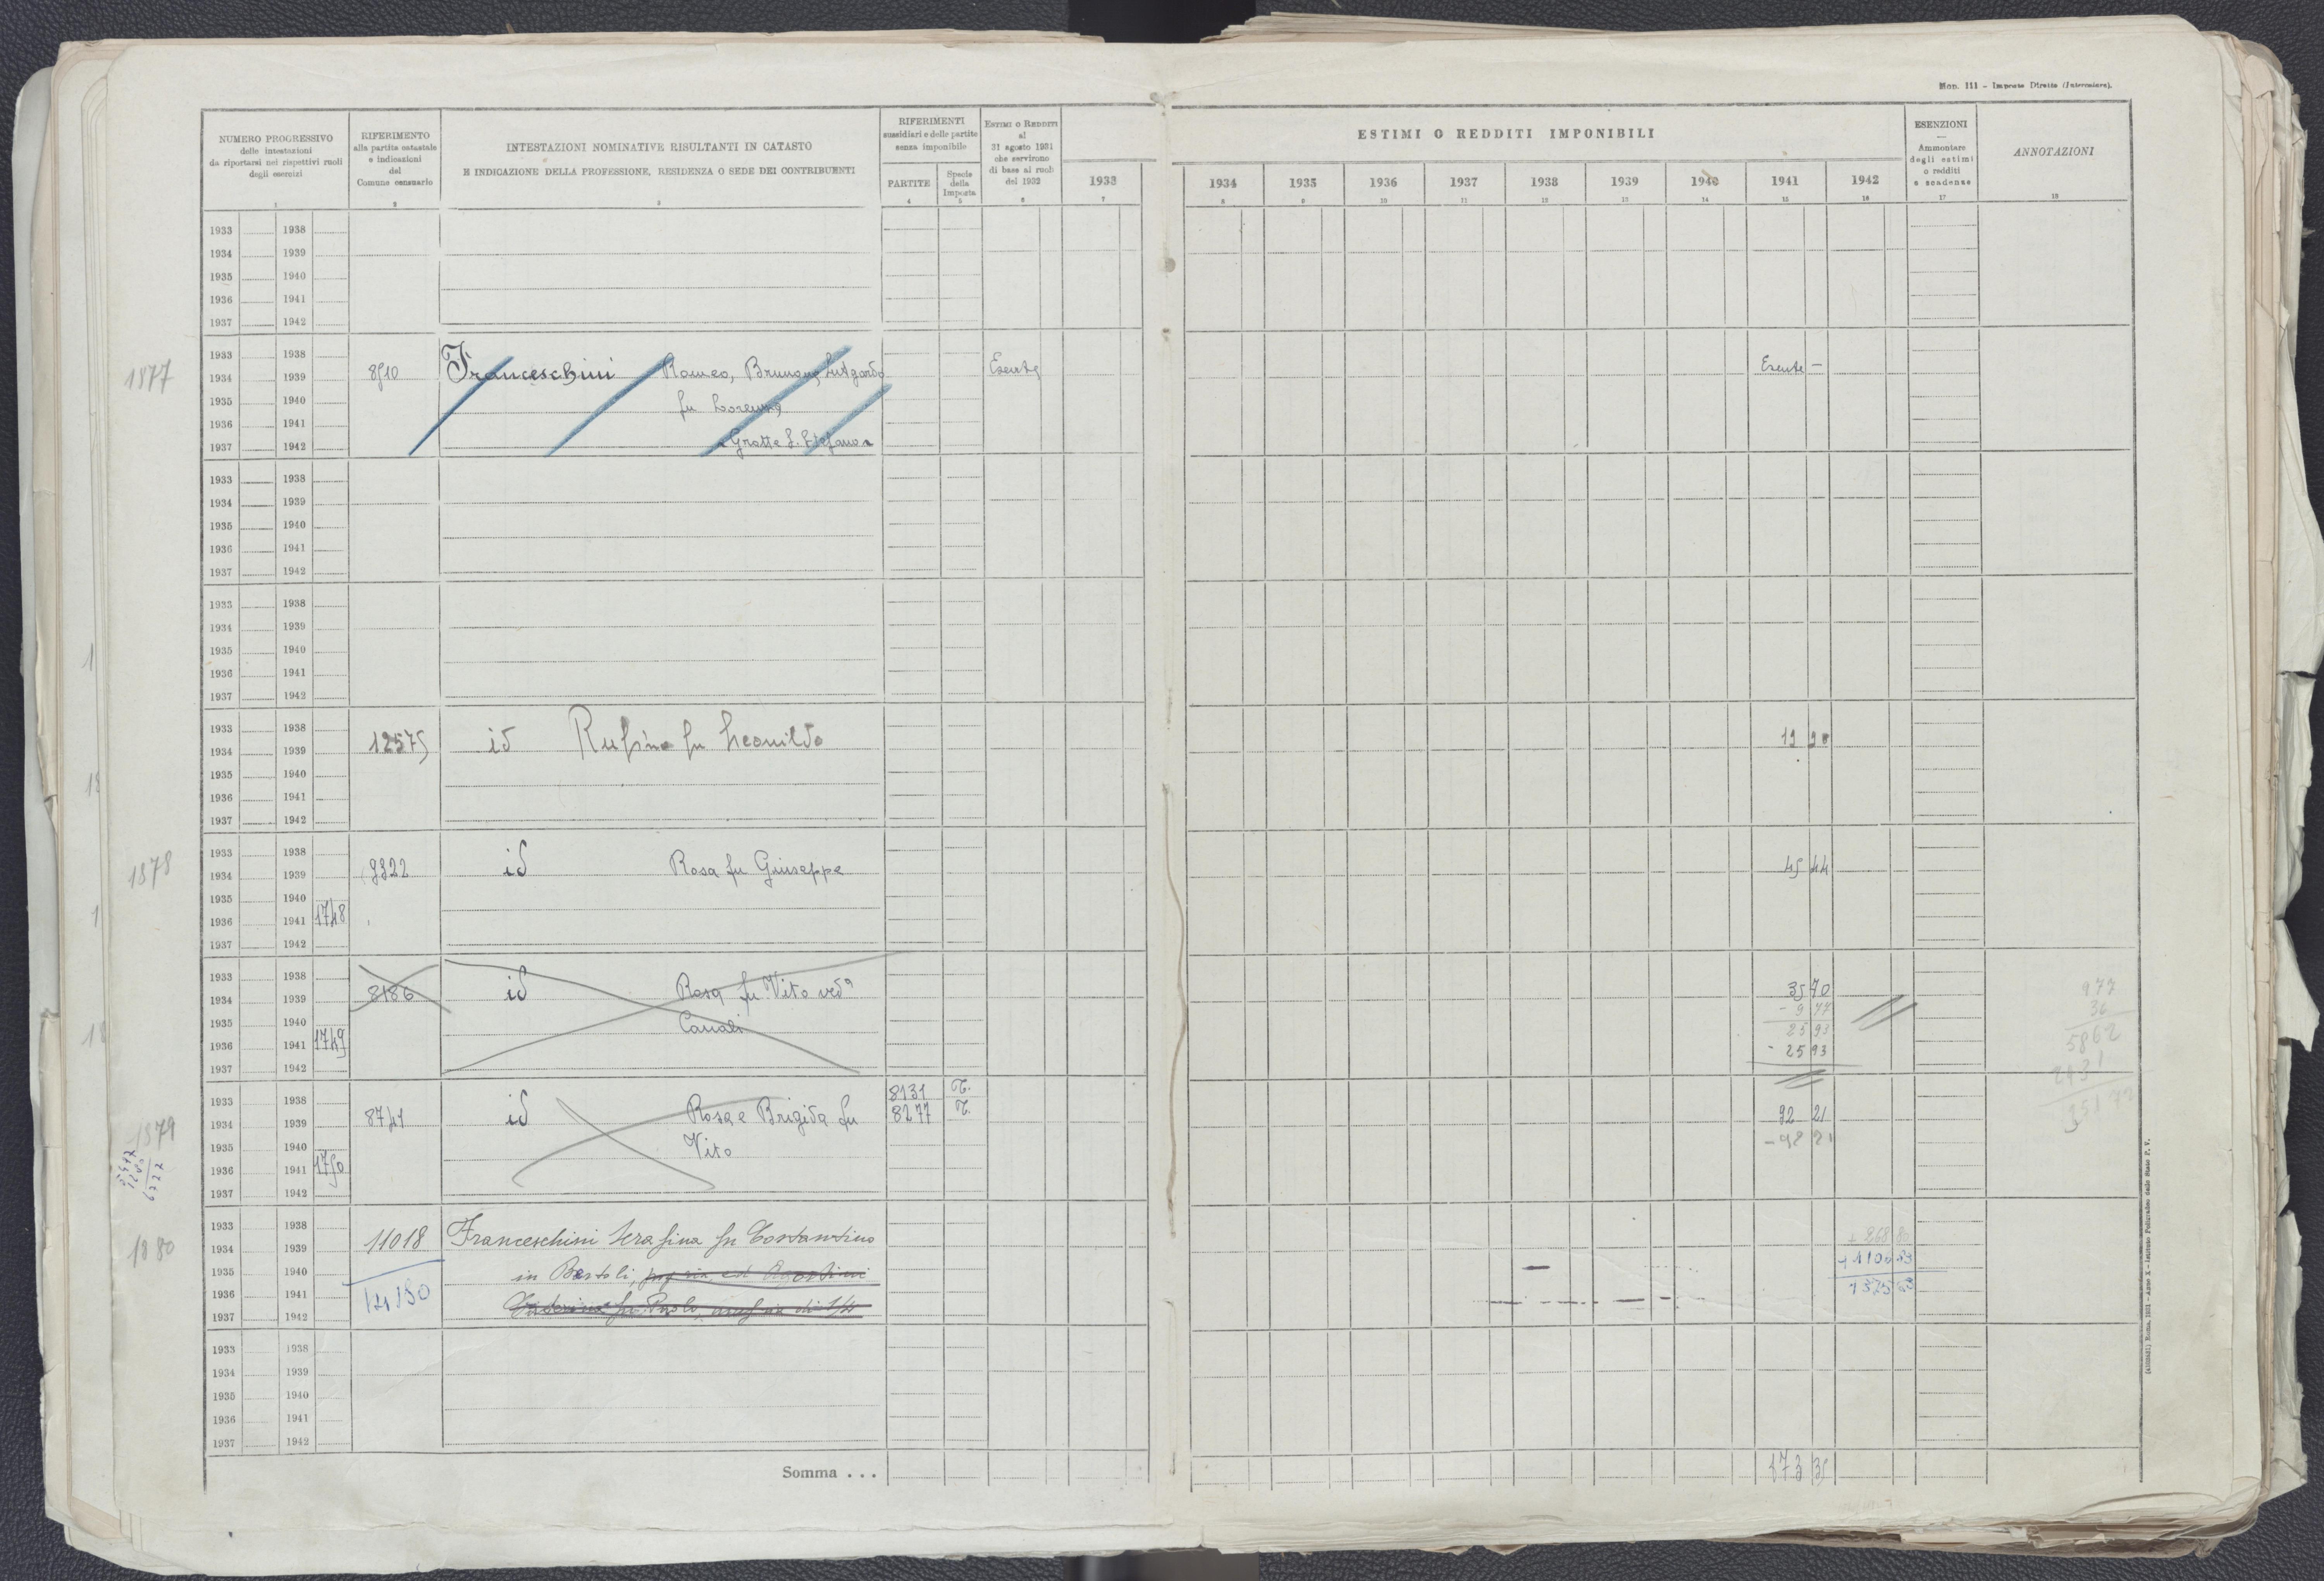 Mod. 111 - Imposte Dirette (Intercalare).
NUMERO PROGRESSIVO
delle intestazioni
da riportarsi nei rispettivi ruoli
degli esercizi
RIFERIMENTO
alla partita catastale
e indicazioni
del
Comune censuario
INTESTAZIONI NOMINATIVE RISULTANTI IN CATASTO
E INDICAZIONE DELLA PROFESSIONE, RESIDENZA O SEDE DEI CONTRIBUENTI
RIFERIMENTI
sussidiari e delle partite
senza imponibile
PARTITE
Specie
della
Imposta
ESTIMI O REDDITI
al
31 agosto 1931
che servirono
di base ai ruoli
del 1932
ESTIMI O REDDITI IMPONIBILI
1933 1934 1935 1936 1937 1938 1939 1940 1941 1942
ESENZIONI
Ammontare
degli estimi
o redditi
e scadenze
ANNOTAZIONI
1 2 3 4 5 6 7 8 9 10 11 12 13 14 15 16 17 18
1933 1938
1934 1939
1935 1940
1936 1941
1937 1942
1877
1933 1938
1934 1939 8510 Franceschini Romeo, Bruno, Lutgardo Esente Esente -
1935 1940 fu Lorenzo
1936 1941
1937 1942 Grotte S. Stefano
1933 1938
1934 1939
1935 1940
1936 1941
1937 1942
1933 1938
1934 1939
1935 1940
1936 1941
1937 1942
1933 1938
1934 1939 12575 id Rufino fu Leonildo 19 90
1935 1940
1936 1941
1937 1942
1878
1933 1938
1934 1939 9322 id Rosa fu Giuseppe 45 44
1935 1940
1936 1941 1748
1937 1942
1933 1938
1934 1939 8186 id Rosa fu Vito ved. 35 70
- 9 77
1935 1940 Canali 25 93
1936 1941 1749 - 25 93
1937 1942
1933 1938 8131 T.
1934 1939 8741 id Rosa e Brigida fu 8277 T. 92 21
1935 1940 Vito - 92 21
1936 1941 1750
1937 1942
1879
1933 1938
1880
1934 1939 11018 Franceschini Serafina fu Costantino + 268 80
1935 1940 in Bartoli,
1936 1941 14190
1937 1942
1933 1938
1934 1939
1935 1940
1936 1941
1937 1942
Somma . . . 173 35